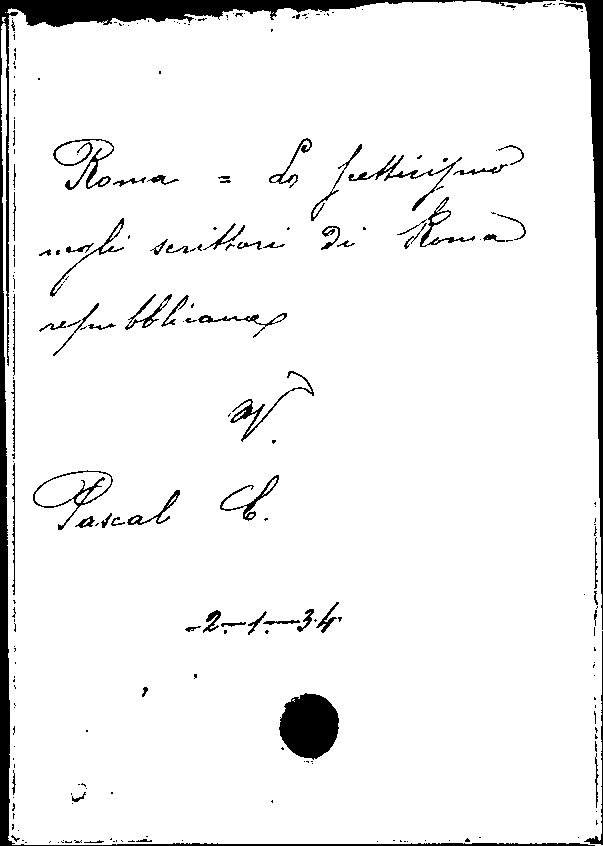 Roma = Lo scetticismo
negli scrittori di Roma
repubblicana
V.
Pascal C.
-2.-1.-34